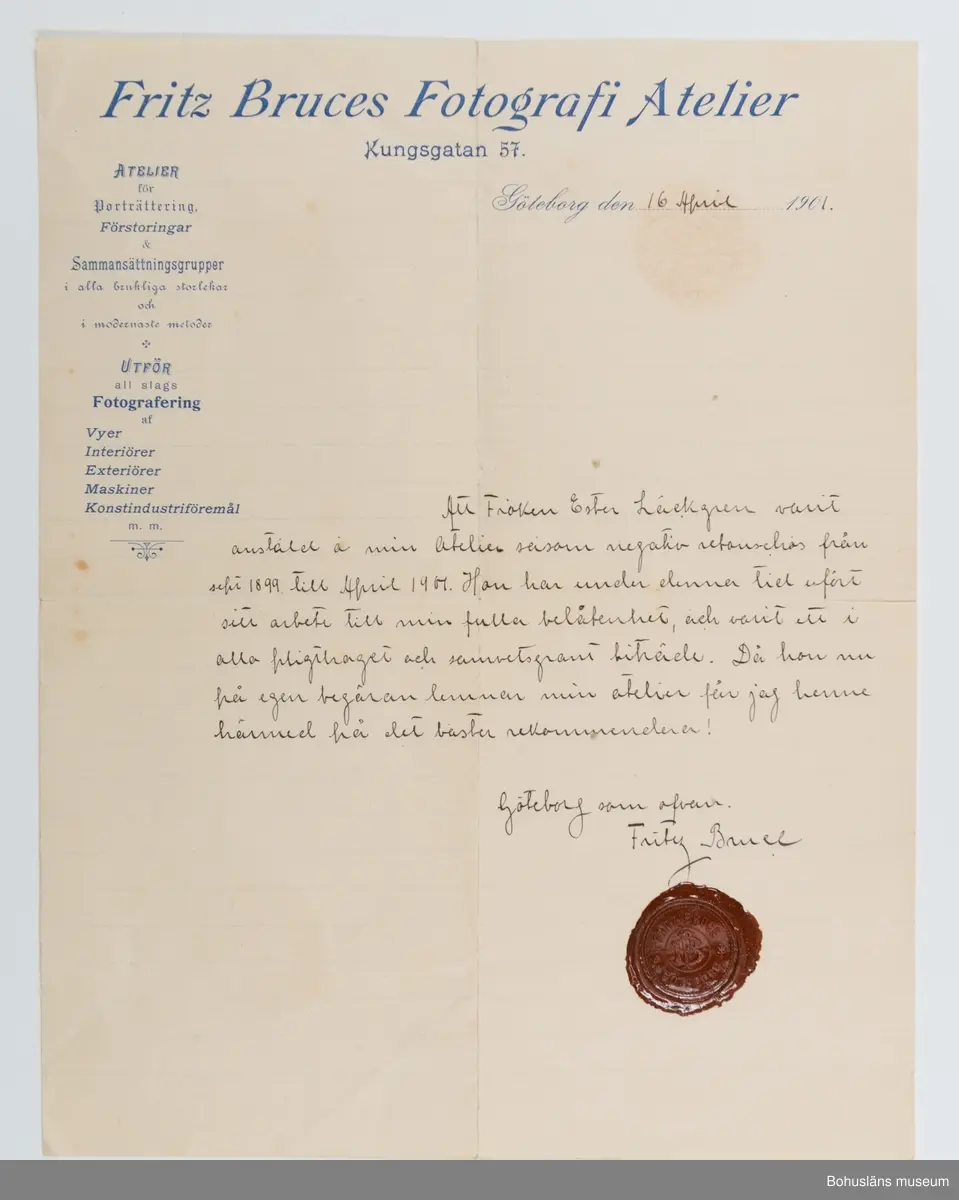 Fritz Bruces Fotografi Atelier
Kungsgatan 57.
ATELIER
för
Porträttering,
Förstoringar
&
Sammansättningsgrupper
i alla brukliga storlekar
och
i modernaste metoder
UTFÖR
all slags
Fotografering
af
Vyer
Interiörer
Exteriörer
Maskiner
Konstindustriföremål
m. m.
Göteborg den 16 April 1901.
Att Fröken Ester Läckgren varit
anstäld å min Atelier såsom negativ retouschös från
sept 1899 till April 1901. Hon har under denna tid utfört
sitt arbete till min fulla belåtenhet, och varit ett i
allo pligttroget och samvetsgrant biträde. Då hon nu
på egen begäran lemnar min atelier får jag henne
härmed på det bästa rekommendera!
Göteborg som ofvan.
Fritz Bruce
Bohusläns museum